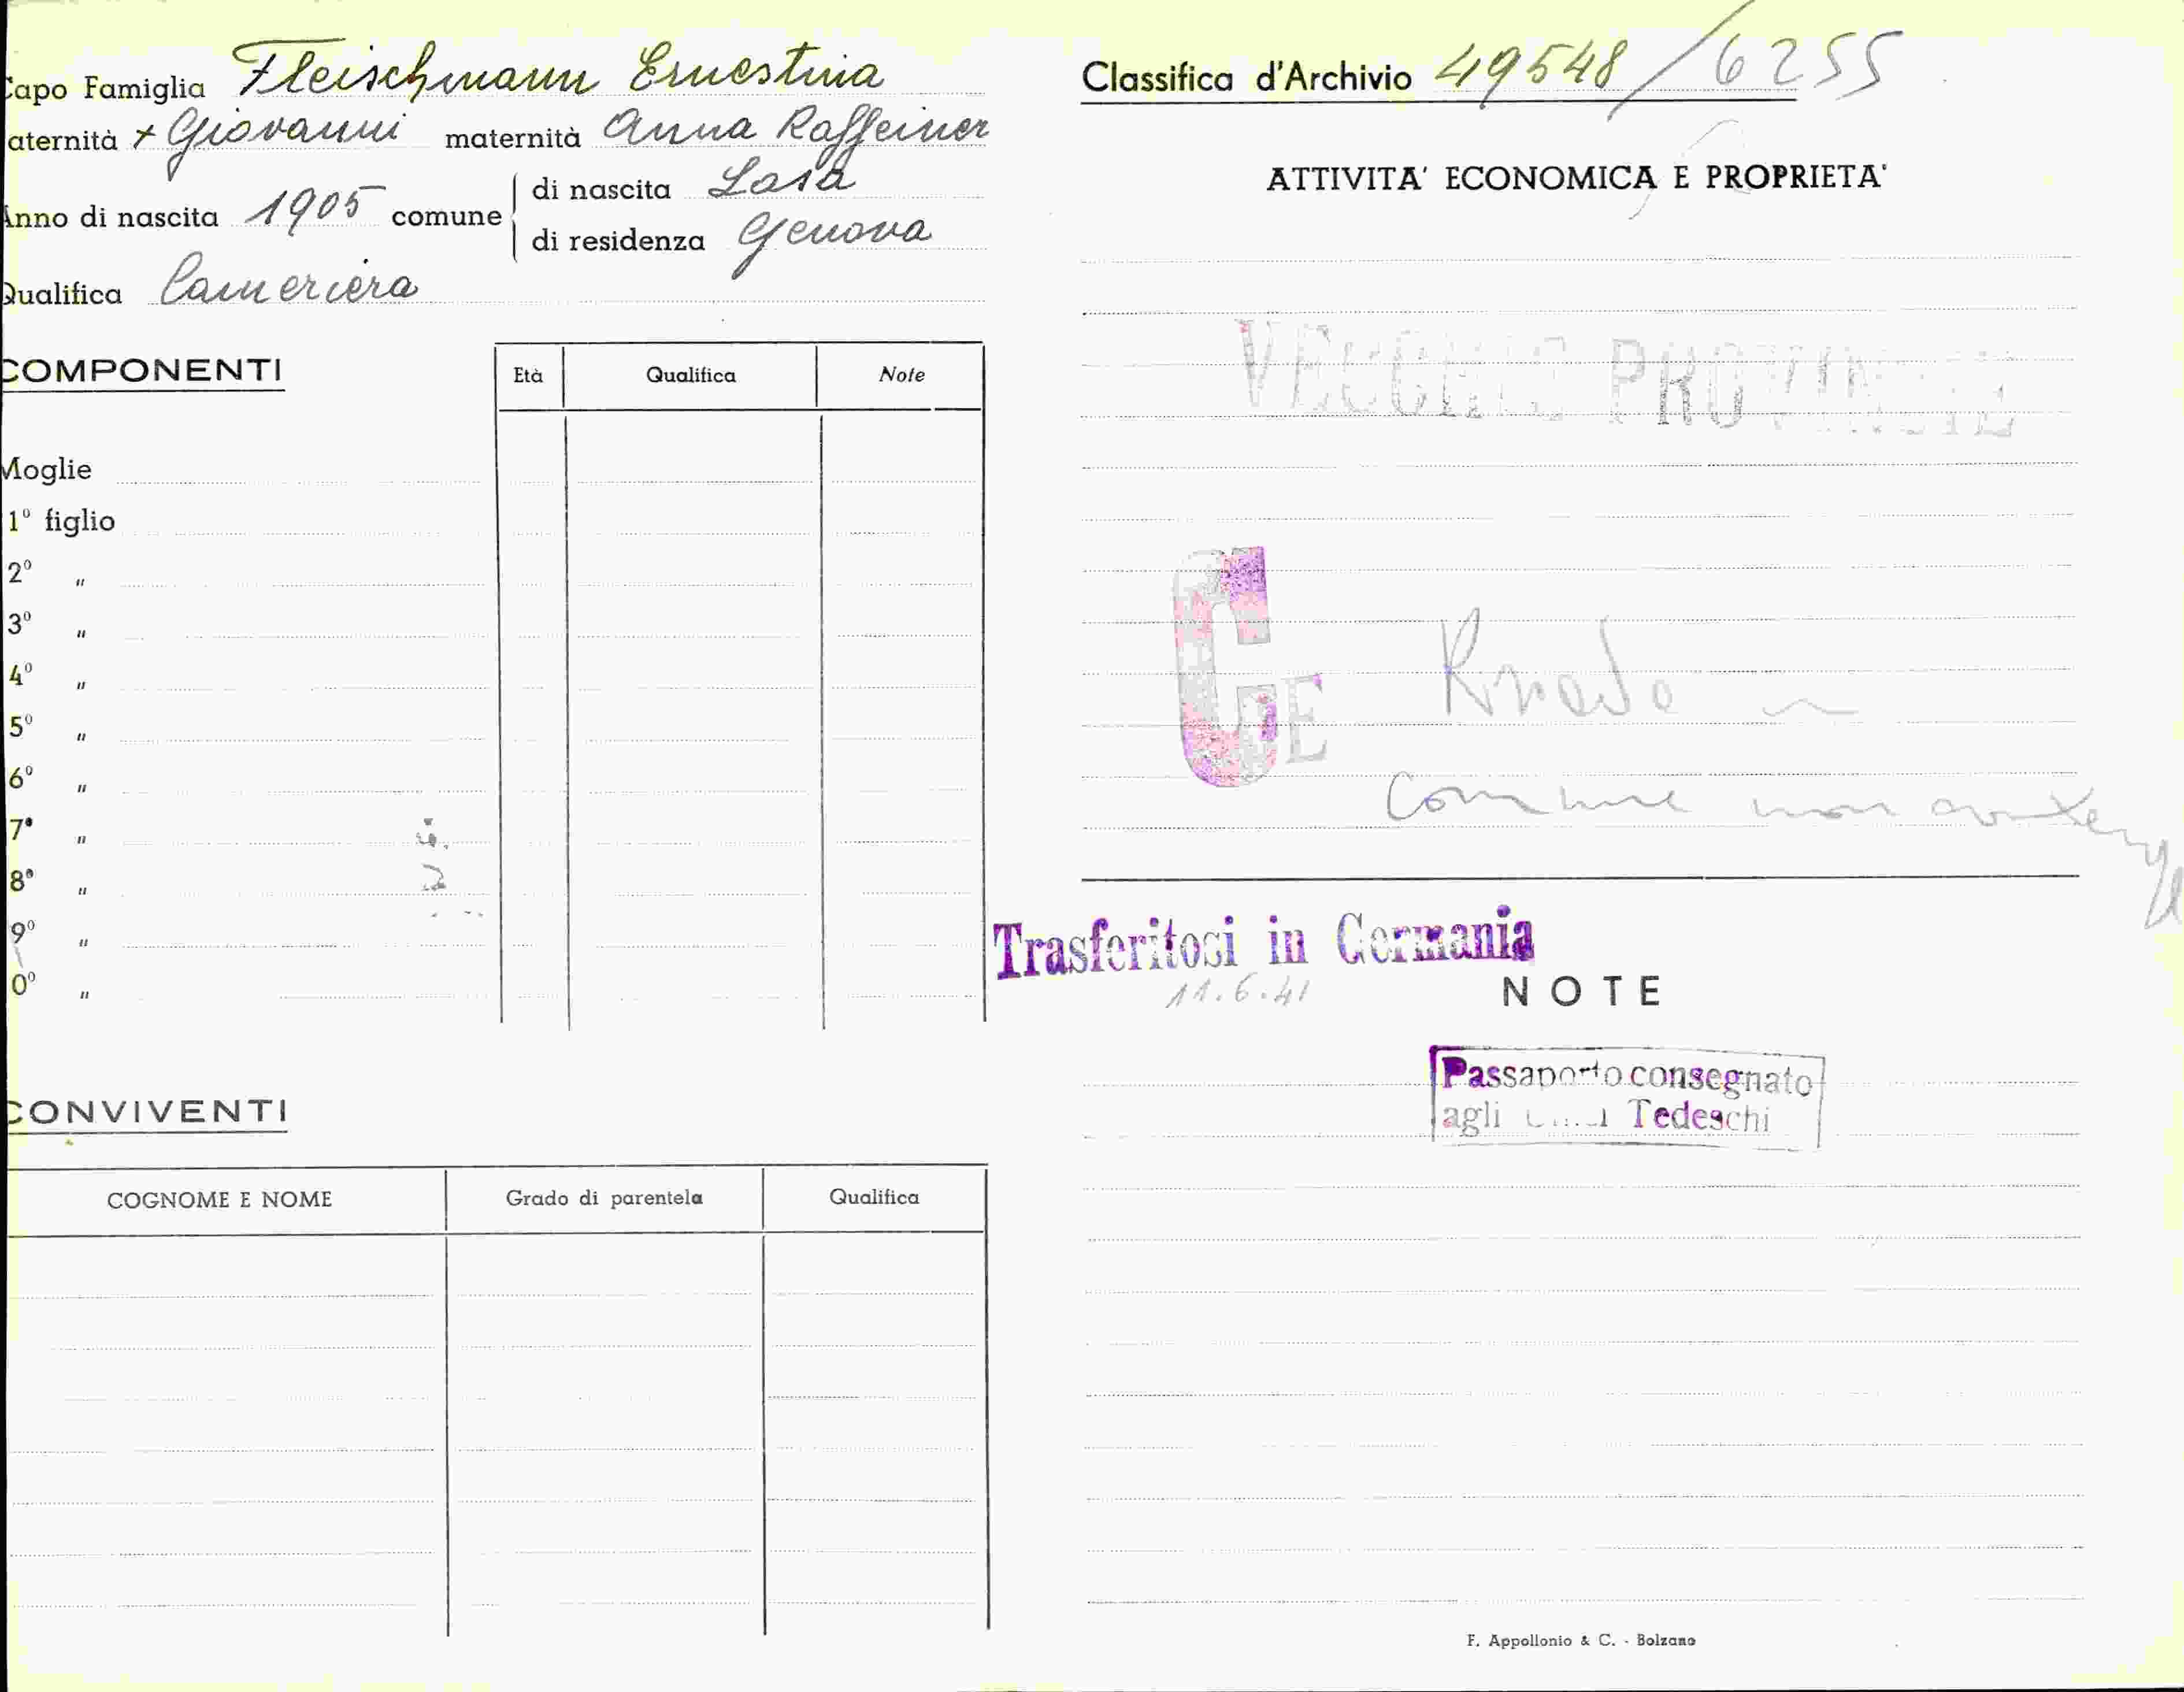 Capo Famiglia Fleischmann Ernestina
aternità + Giovanni maternità Anna Raffeiner
Anno di nascita 1905 comune di nascita Lasa
di residenza Genova
Qualifica Cameriera
COMPONENTI Età Qualifica Note
Moglie
1º figlio
2º "
3º "
4º "
5º "
6º "
7º "
8º "
9º "
0º "
CONVIVENTI
COGNOME E NOME Grado di parentela Qualifica
Classifica d'Archivio 49548/6255
ATTIVITA' ECONOMICA E PROPRIETA'
VECCHIE PROVINCIE
C GE
Comune non
Trasferitosi in Germania
11.6.41
NOTE
Passaporto consegnato
agli Tedeschi
F. Appollonio & C. - Bolzano